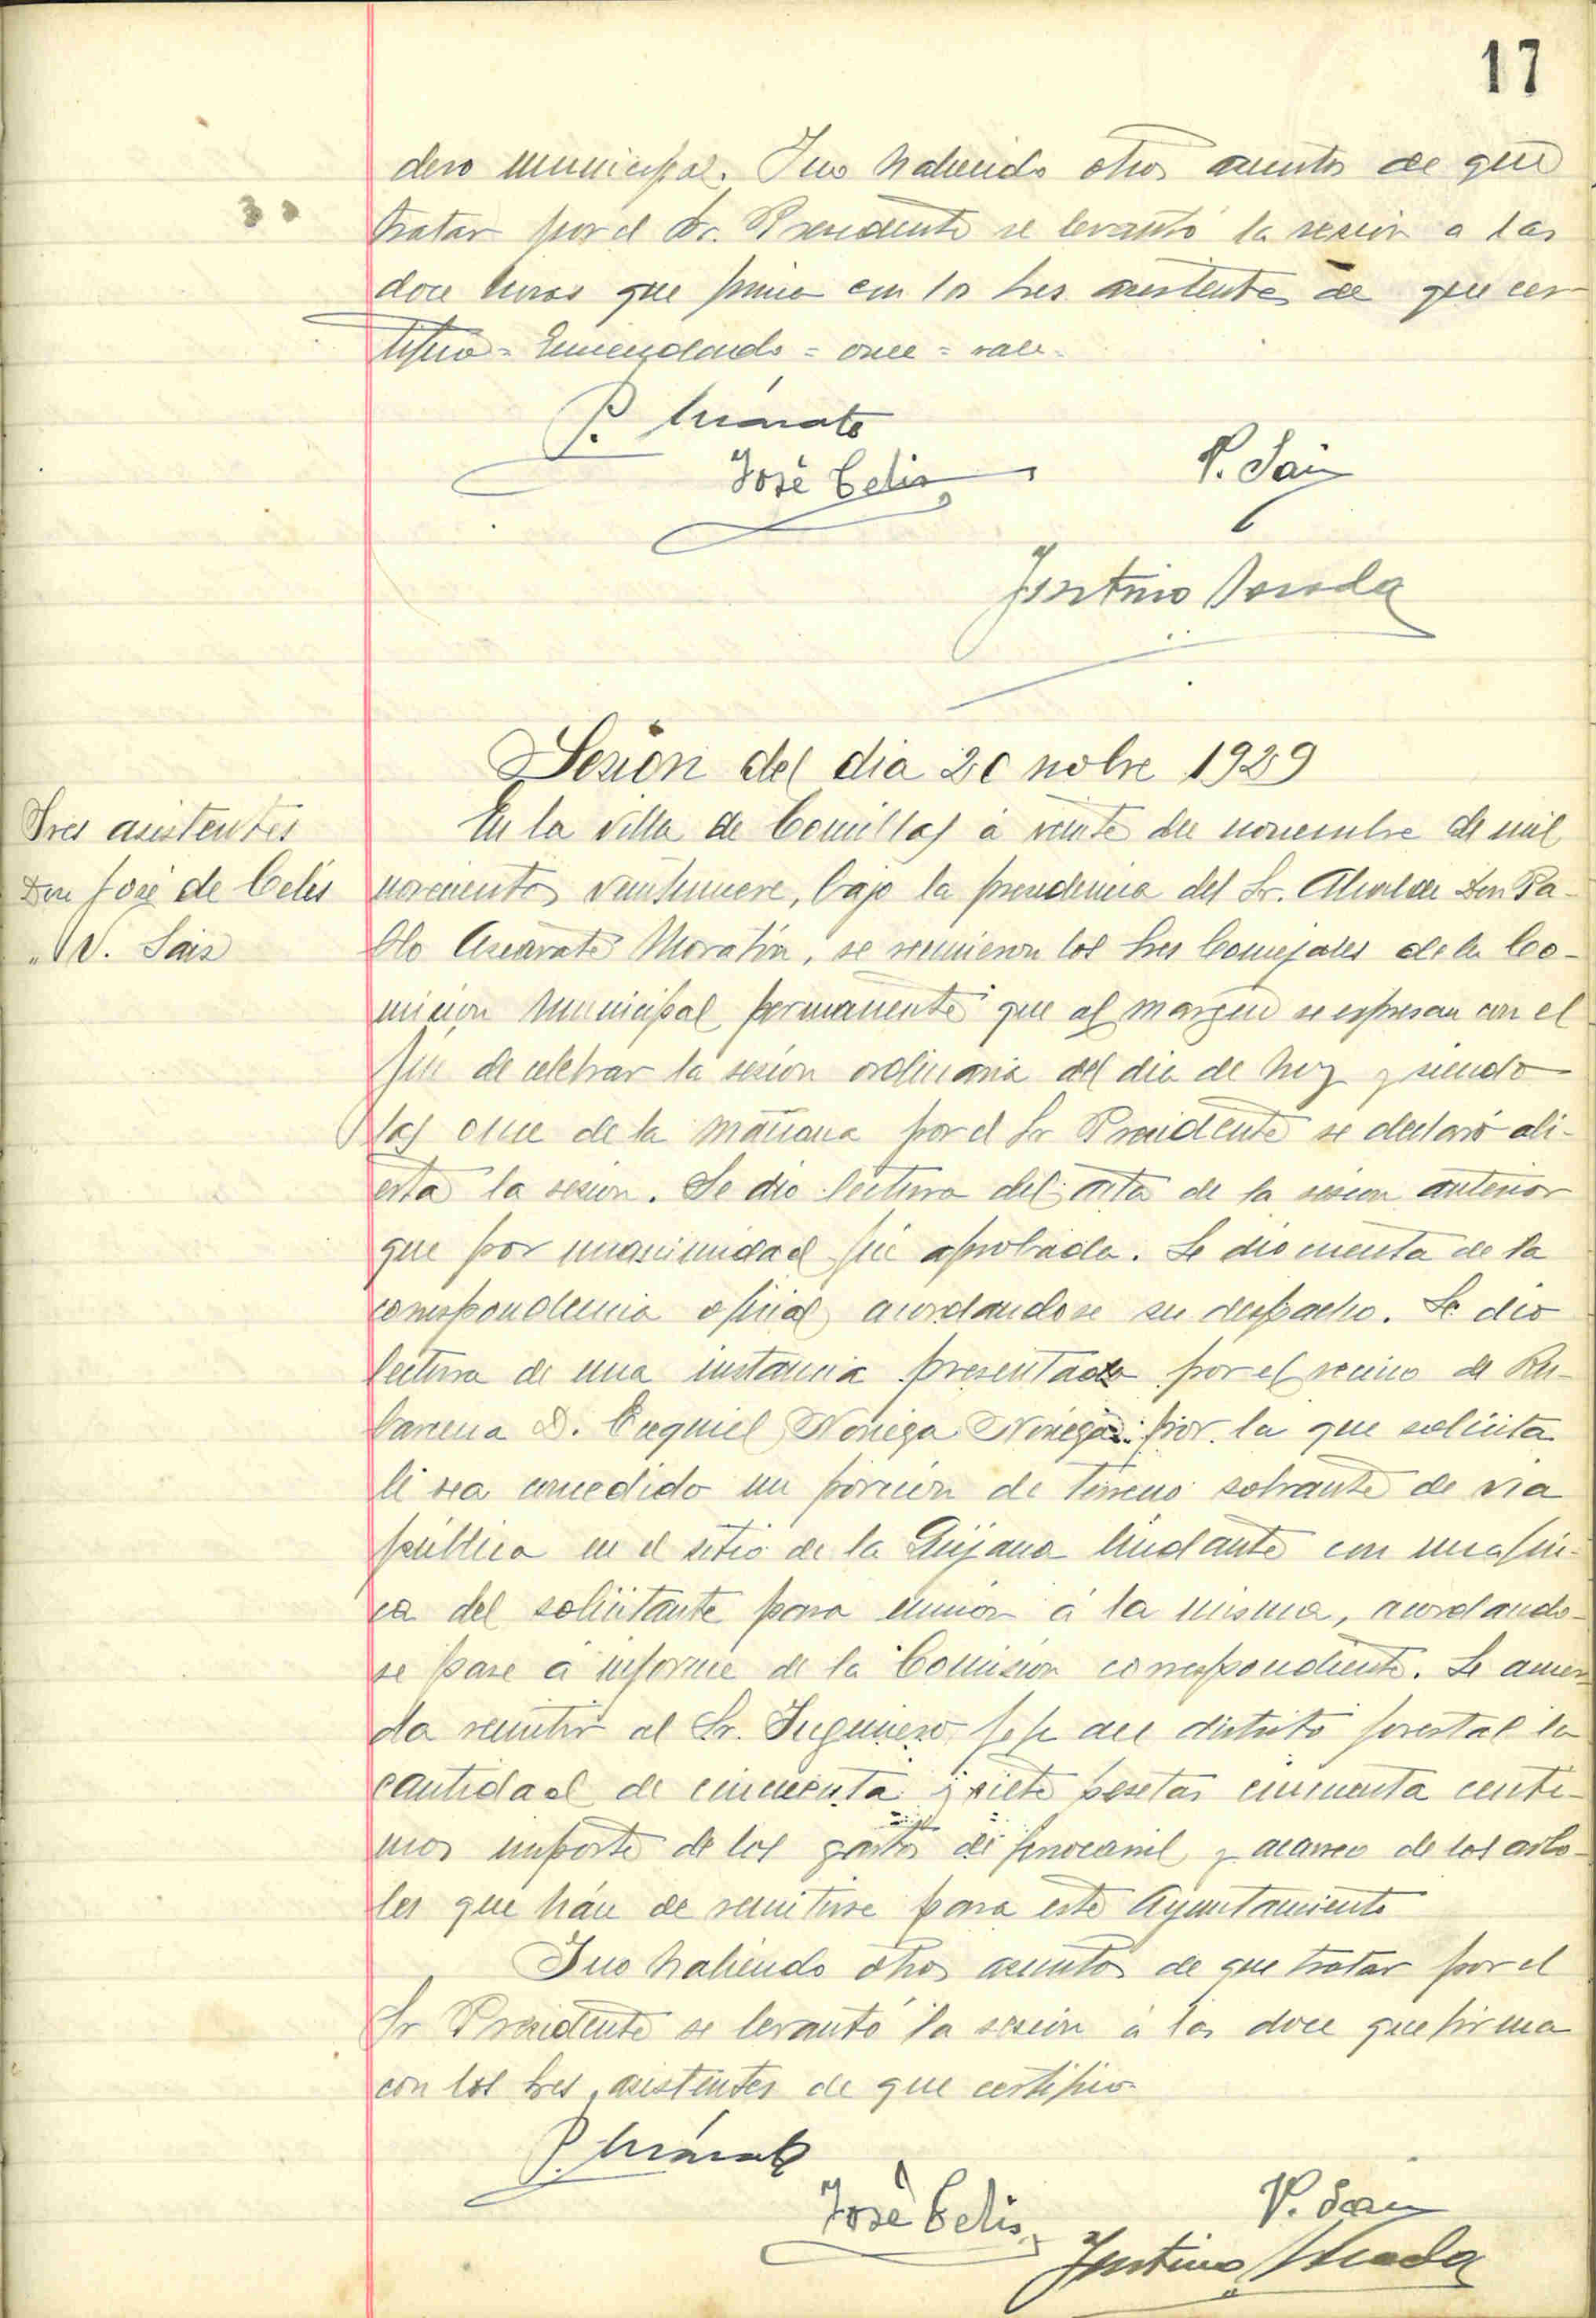 17
dero municipal. Y no habiendo otros asuntos de que
tratar por el Sr. Presidente se levantó la sesión a las
doce horas que firma con los Sres asistentes de que cer-
tifico = Enmendado = once = vale =
P. Azcárate
José Celis
V. Saiz
Sesión del dia 20 nobre 1929
Sres asistentes
Don José de Celis
" V. Saiz
En la villa de Comillas á veinte de noviembre de mil
novecientos veintinueve, bajo la presidencia del Sr. Alcalde Don Pa-
blo Azcárate Moratín, se reunieron los Sres Concejales de la Co-
mision Municipal permanente que al margen se espresan con el
fin de celebrar la sesión ordinaria del dia de hoy y siendo
las once de la mañana por el Sr Presidente se declaró abi-
erta la sesion. Se dio lectura del acta de la sesion anterior
que por unanimidad fué aprobada. Se dio cuenta de la
correspondencia oficial acordandose su despacho. Se dio
lectura de una instancia presentada por el vecino de Ru-
barcena D. Ezequiel Noriega Noriega por la que solicita
le sea concedido un porción de terreno sobrante de via
pública en el sitio de la Guijana lindante con una fin-
ca del solicitante para unión á la misma, acordando-
se pase á informe de la Comisión correspondiente. Se acuer-
da remitir al Sr. Ingeniero Jefe del distrito forestal la
cantidad de cincuenta y siete pesetas cincuenta centi-
mos importe de los gastos de ferrocarril y acarreo de los arbo-
les que hán de remitirse para este Ayuntamiento
Y no habiendo otros asuntos de que tratar por el
Sr Presidente se levantó la sesión á las doce que firma
con los Sres asistentes de que certifico
P. Azcárate
José Celis
V. Saiz